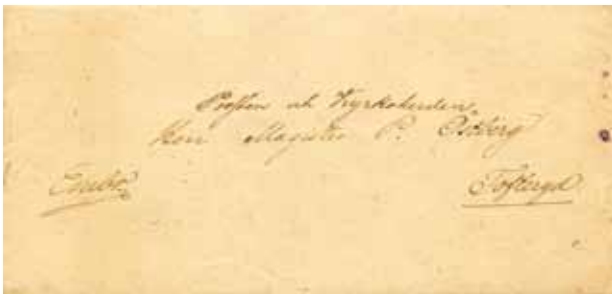 Prosten och Kyrkoherden
Herr Magister P. Östberg
Tofteryd